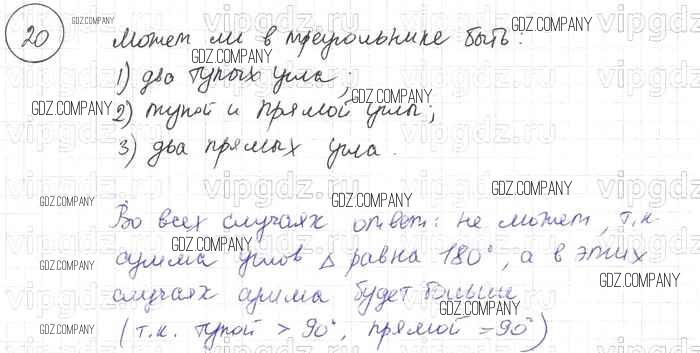 20 Может ли в треугольнике быть:
1) два тупых угла;
2) тупой и прямой углы;
3) два прямых угла.
Во всех случаях ответ: не может, т.к.
сумма углов Δ равна 180°, а в этих
случаях сумма будет больше
(т.к. тупой > 90°, прямой = 90°)
GDZ.COMPANY
GDZ.COMPANY
GDZ.COMPANY
GDZ.COMPANY
GDZ.COMPANY
GDZ.COMPANY
GDZ.COMPANY
GDZ.COMPANY
GDZ.COMPANY
GDZ.COMPANY
GDZ.COMPANY
GDZ.COMPANY
GDZ.COMPANY
GDZ.COMPANY
vipgdz.ru